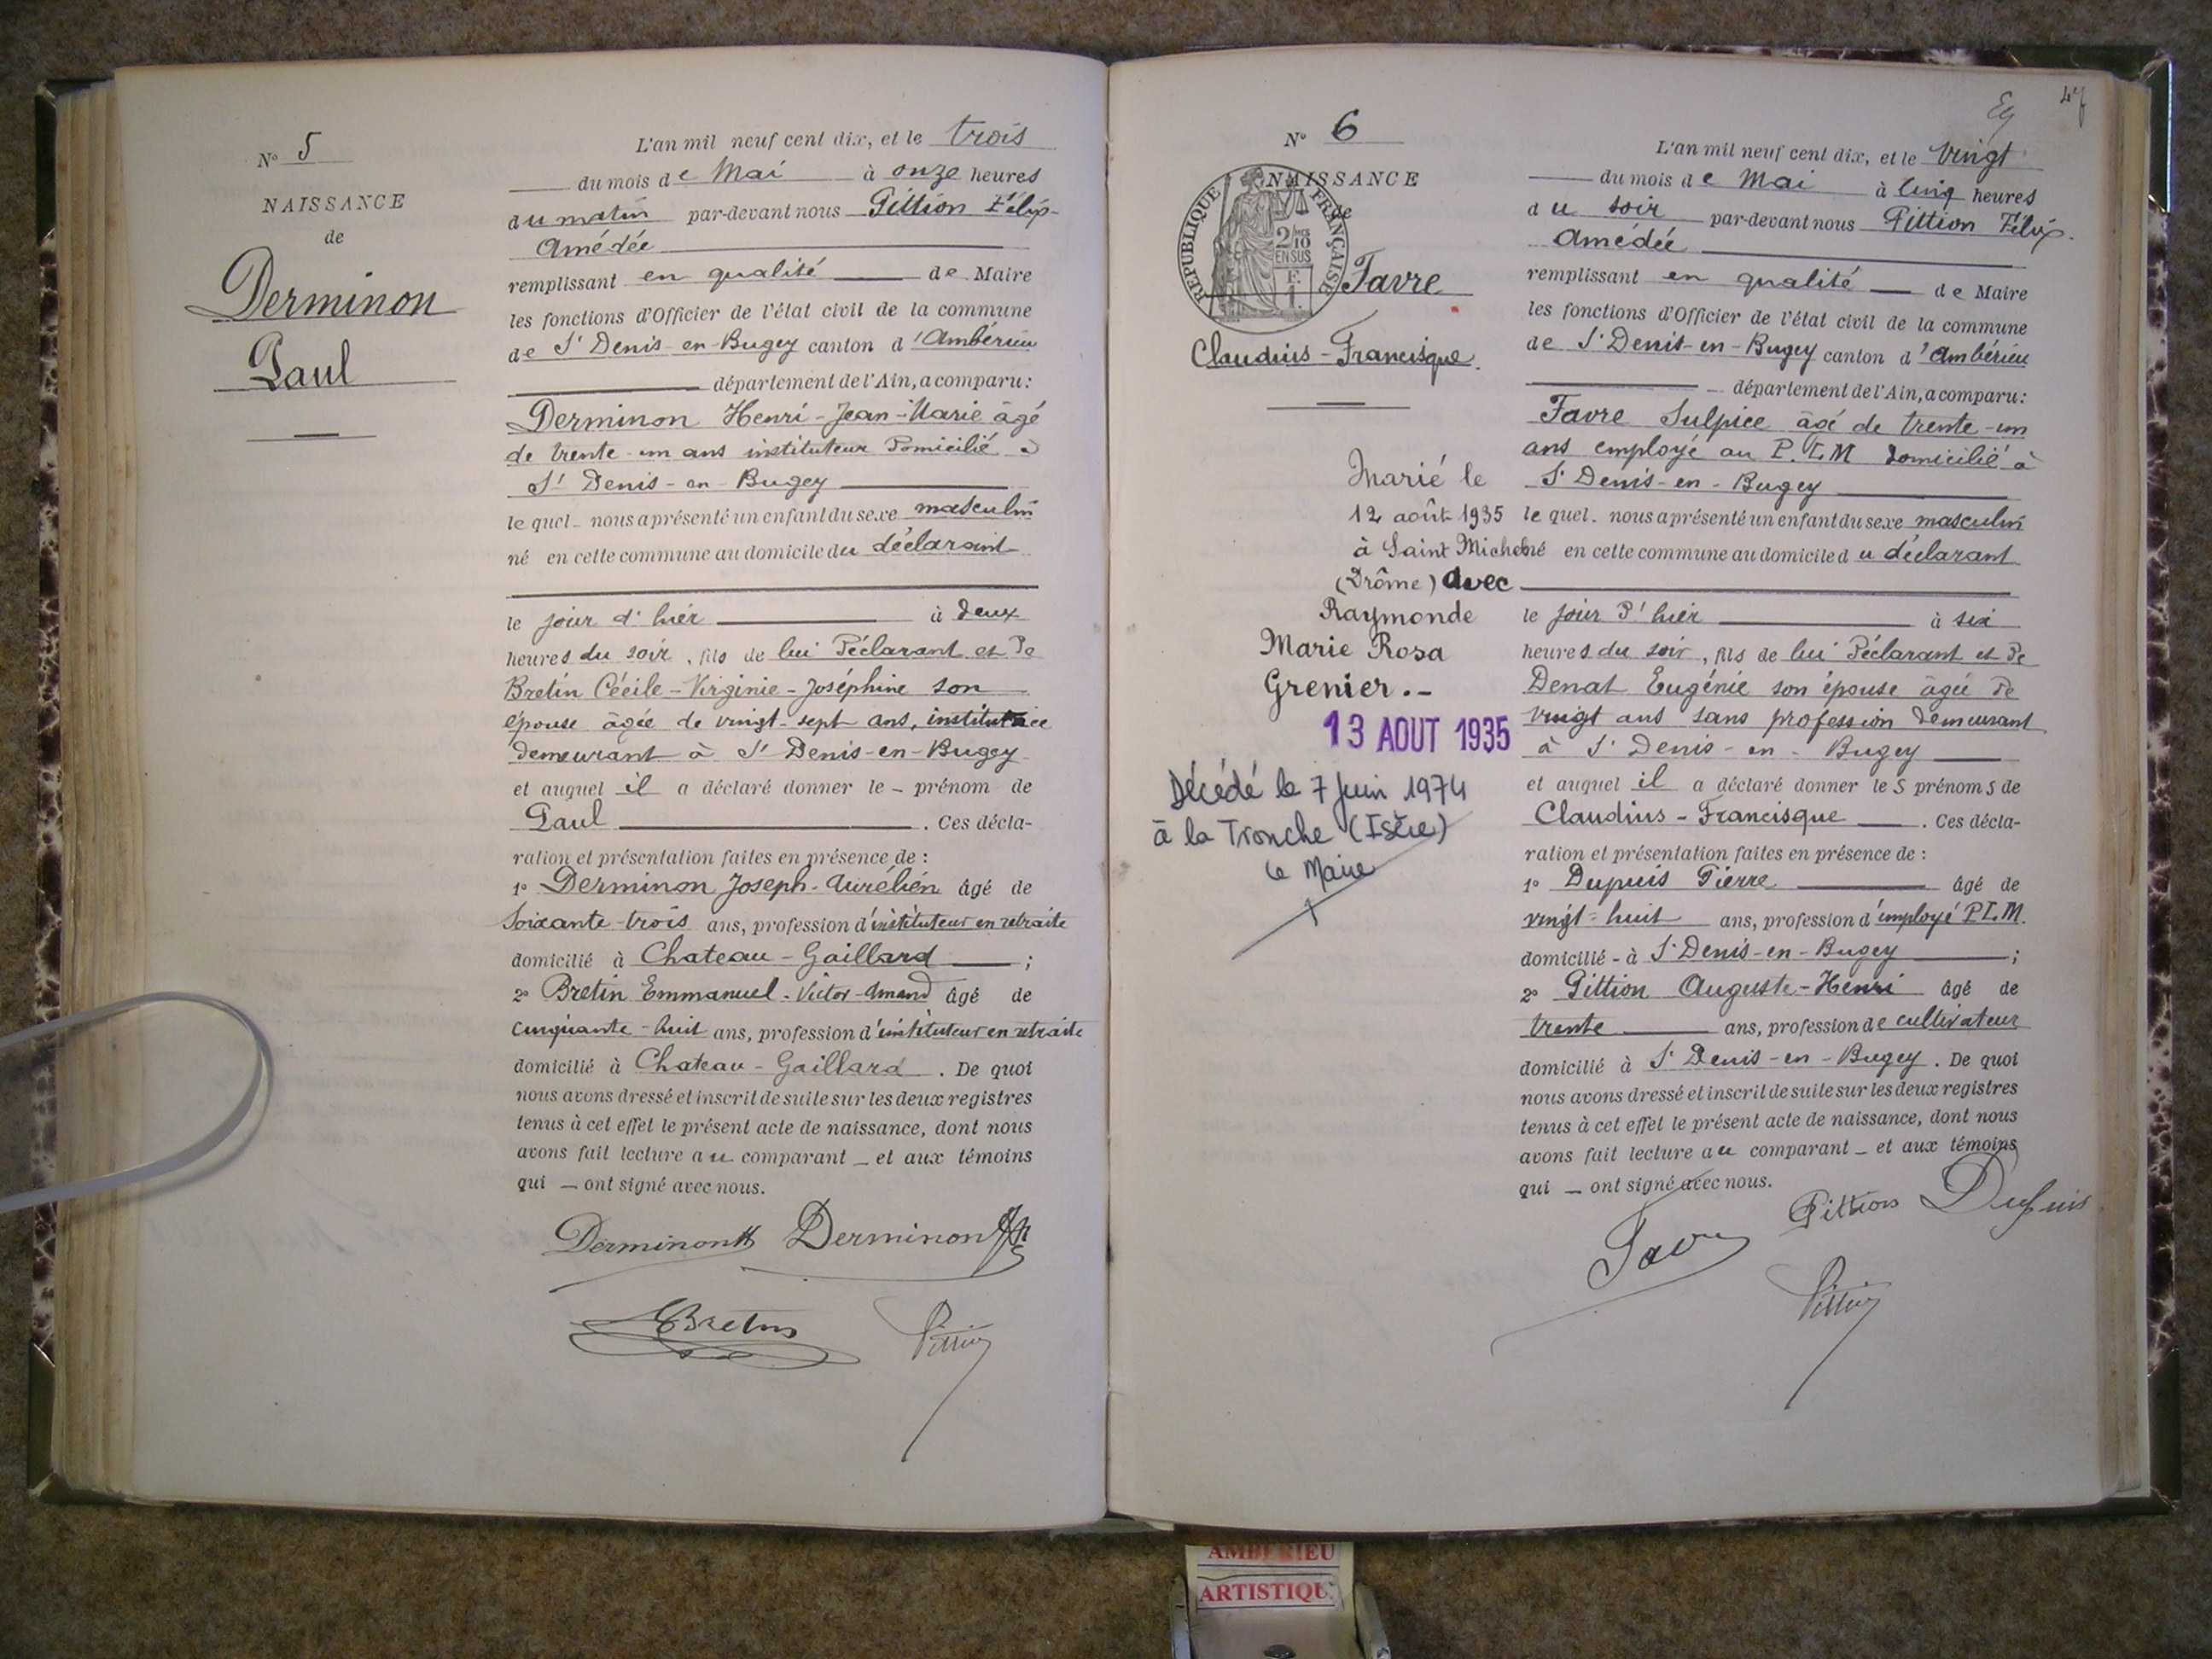 N° 5
NAISSANCE
de
Derminon
Paul
L'an mil neuf cent dix, et le trois
du mois de Mai à onze heures
du matin par-devant nous Pittion Félix-
Amédée
remplissant en qualité de Maire
les fonctions d'Officier de l'état civil de la commune
de St Denis-en-Bugey canton d'Ambérieu
département de l'Ain, a comparu:
Derminon Henri-Jean-Marie âgé
de trente-un ans instituteur domicilié à
St Denis-en-Bugey
le quel nous a présenté un enfant du sexe masculin
né en cette commune au domicile du déclarant
le jour d'hier à deux
heures du soir, fils de lui déclarant et de
Bretin Cécile-Virginie-Joséphine son
épouse âgée de vingt-sept ans, institutrice
demeurant à St Denis-en-Bugey
et auquel il a déclaré donner le prénom de
Paul . Ces décla-
ration et présentation faites en présence de :
1° Derminon Joseph-Aurélien âgé de
soixante-trois ans, profession d'instituteur en retraite
domicilié à Chateau-Gaillard ;
2° Bretin Emmanuel-Victor-Amand âgé de
cinquante-huit ans, profession d'instituteur en retraite
domicilié à Chateau-Gaillard . De quoi
nous avons dressé et inscrit de suite sur les deux registres
tenus à cet effet le présent acte de naissance, dont nous
avons fait lecture au comparant et aux témoins
qui ont signé avec nous.
Derminon Derminon
Bretin Pittion
47
N° 6
NAISSANCE
de
REPUBLIQUE FRANÇAISE
2/10
EN SUS
Favre
Claudius-Francisque.
Marié le
12 août 1935
à Saint Michel
(Drôme) avec
Raymonde
Marie Rosa
Grenier.-
13 AOUT 1935
Décédé le 7 Juin 1974
à la Tronche (Isère)
Le Maire
L'an mil neuf cent dix, et le vingt
du mois de Mai à cinq heures
du soir par-devant nous Pittion Félix.
Amédée
remplissant en qualité de Maire
les fonctions d'Officier de l'état civil de la commune
de St Denis-en-Bugey canton d'Ambérieu
département de l'Ain, a comparu:
Favre Sulpice âgé de trente-un
ans employé au P.L.M domicilié à
St Denis-en-Bugey
le quel. nous a présenté un enfant du sexe masculin
né en cette commune au domicile du déclarant
le jour d'hier à six
heures du soir, fils de lui déclarant et de
Denat Eugénie son épouse âgée de
vingt ans sans profession demeurant
à St Denis-en-Bugey
et auquel il a déclaré donner les prénoms de
Claudius-Francisque . Ces décla-
ration et présentation faites en présence de :
1° Dupuis Pierre âgé de
vingt-huit ans, profession d'employé PLM.
domicilié à St Denis-en-Bugey ;
2° Pittion Auguste-Henri âgé de
trente ans, profession de cultivateur
domicilié à St Denis-en-Bugey . De quoi
nous avons dressé et inscrit de suite sur les deux registres
tenus à cet effet le présent acte de naissance, dont nous
avons fait lecture au comparant et aux témoins
qui ont signé avec nous.
Pittion Dupuis
Favre
Pittion
AMBERIEU
ARTISTIQUE